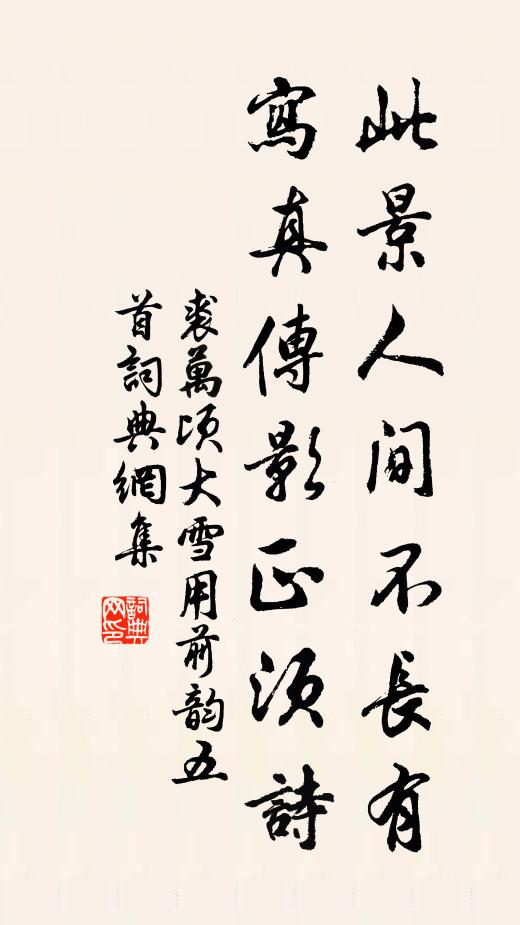 此景人間不長有
寫真傳影正須詩
裘萬頃大雪用前韵五
首詞典網集
詞典
网印